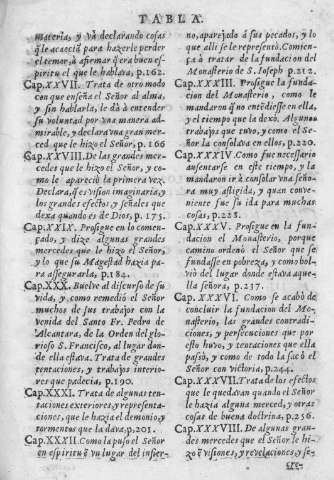 TABLA.
materia, y và declarando cosas
q̃ le acaeciã para hazerle perder
el temor, à afirmar q̃ era buen es-
piritu el que le hablava, p.162.
Cap.XXVII. Trata de otro modo
con que enseña el Señor al alma,
y sin hablarla, le dà à entender
su voluntad por vna manera ad-
mirable, y declara vna gran mer-
ced que le hizo el Señor, p.166
Cap.XXVIII. De las grandes mer-
cedes que le hizo el Señor, y co-
mo le apareciò la primera vez.
Declara, q̃ es vision imaginaria, y
los grandes efectos, y señales que
dexa quando es de Dios, p. 175.
Cap.XXIX. Prosigue en lo comen-
çado, y dize algunas grandes
mercedes que le hizo el Señor,
y lo que su Magestad hazia pa-
ra assegurarla, p.184.
Cap.XXX. Buelve al discurso de su
vida, y como remediò el Señor
muchos de sus trabajos con la
venida del Santo Fr. Pedro de
Alcantara, de la Orden del glo-
rioso S. Francisco, al lugar don-
de ella estava. Trata de grandes
tentaciones, y trabajos interio-
res que padecia, p.190.
Cap.XXXI. Trata de algunas ten-
taciones exteriores, y representa-
ciones, que le hazia el demonio, y
tormentos que la dava, p.201.
Cap.XXXII. Como la puso el Señor
en espiritu ẽ vn lugar del infier-
no, aparejado à sus pecados, y lo
que alli se le representò. Comien-
ça à tratar de la fundacion del
Monasterio de S. Joseph p.212.
Cap.XXXIII. Prosigue la funda-
cion del Monasterio, como le
mandaron q̃ no entẽdiesse en ella,
y el tiempo que la dexò. Algunos
trabajos que tuvo, y como el Se-
ñor la consolava en ellos, p.220.
Cap.XXXIV. Como fue necessario
ausentarse en este tiempo, y la
mandaron ir à consolar vna seño-
ra muy afligida, y quan conve-
niente fue su ida para muchas
cosas, p.228.
Cap.XXXV. Prosigue en la fun-
dacion el Monasterio, porque
camino ordenò el Señor que se
fundasse en pobreza, y como bol-
viò del lugar donde estava aque-
lla señora, p.237.
Cap.XXXVI. Como se acabò de
concluir la fundacion del Mo-
nasterio, las grandes contradi-
ciones, y persecuciones que por
esto huvo, y tentaciones que ella
passò, y como de todo la sacò el
Señor con victoria, p.244.
Cap.XXXVII. Trata de los efectos
que le quedavan quando el Señor
le hazia alguna merced, y otras
cosas de buena doctrina, p.256.
Cap.XXXVIII. De algunas gran-
des mercedes que el Señor le hi-
zo ẽ visiones, y revelaciones, y se-